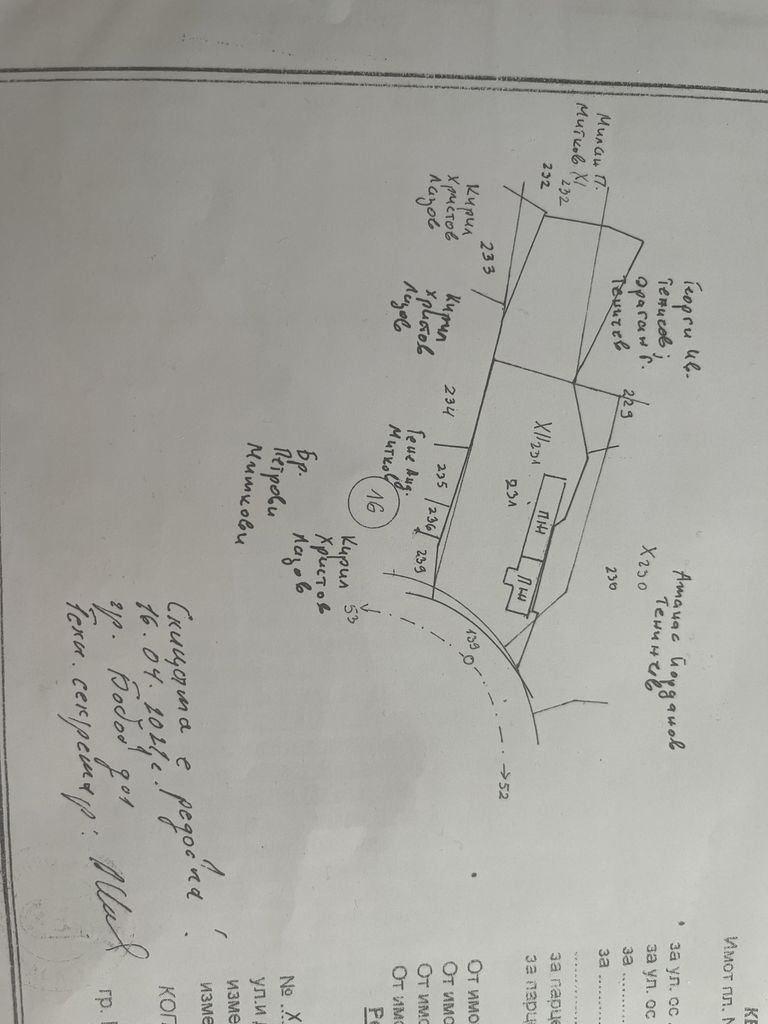 Милан П.
Митков XI 232
232
Кирил
Христов
Лазов
233
Георги Ив.
Теничов;
Драган Г.
Теничев
229
Кирил
Христов
Лазов
234
XII 231
231
ПЖ
ПЖ
Атанас Йорданов
Теничев
X 230
230
Гене Анд.
Митков
235
236
239
16
Бр.
Петрови
Миткови
Кирил
Христов
Лазов
53
139
52
Скицата е редовна!
16.04.2021 г.
гр. Бобов дол
Техн. секретар:
Имот пл. №
за ул. ос
за ул. ос
за
за
за парце
за парце
От имо
От имо
От имо
От имо
№ ..X
ул.и
измен
изме
КОП
гр.